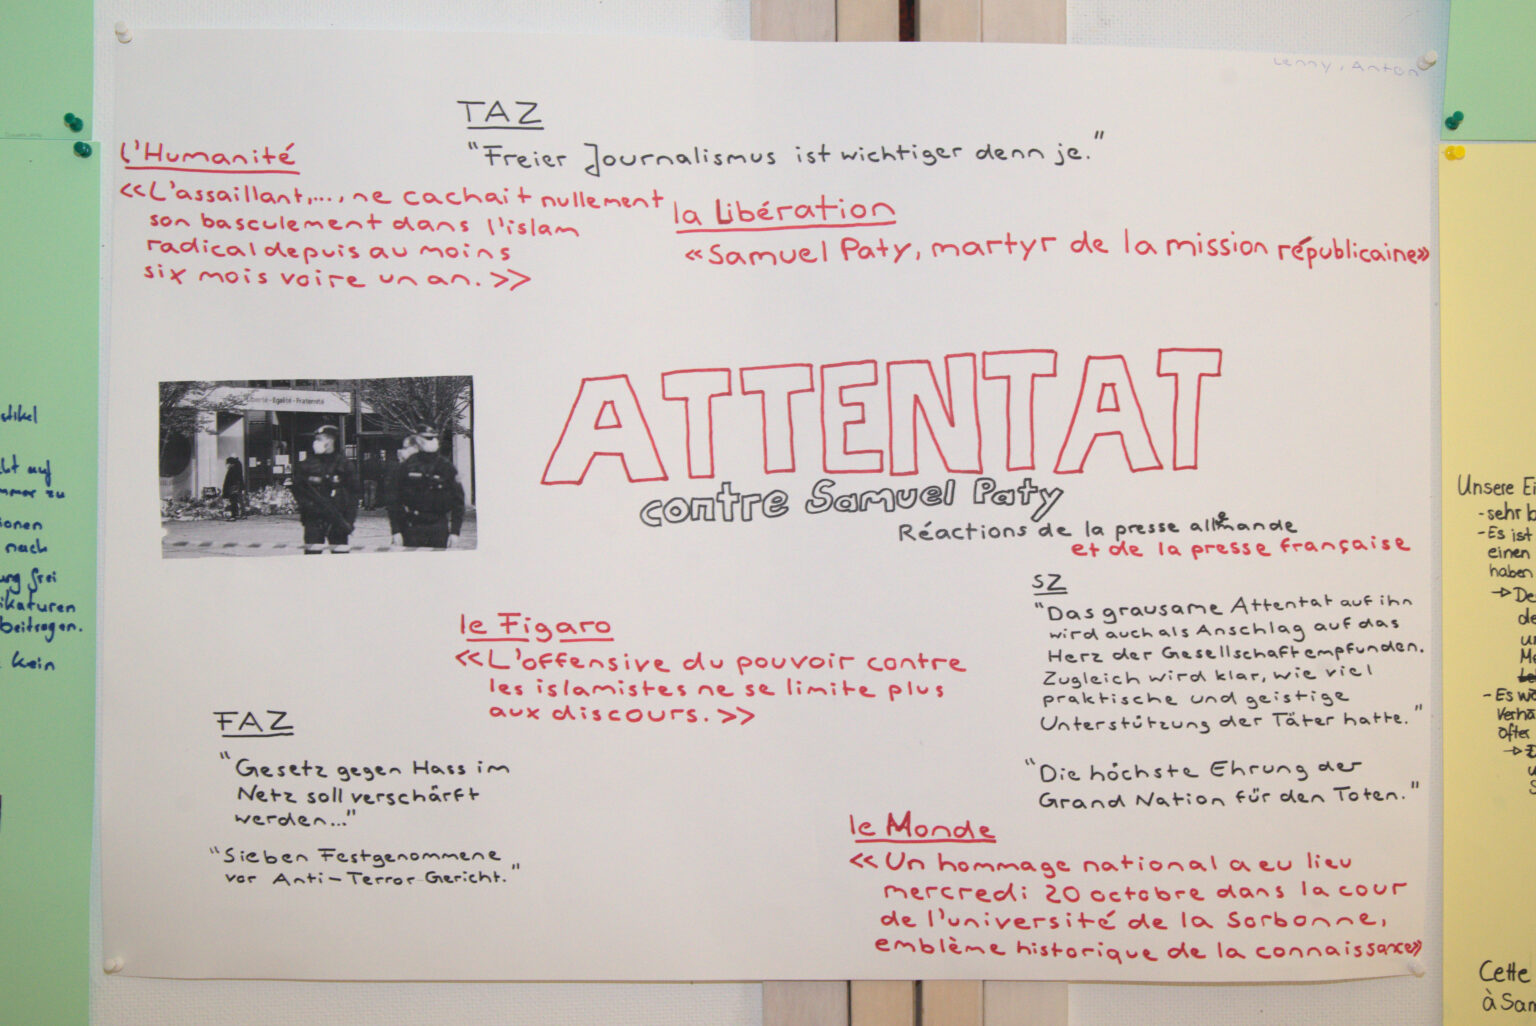 Lenny, Anton
TAZ
"Freier Journalismus ist wichtiger denn je."
L'Humanité
<<L'assaillant,..., ne cachait nullement
son basculement dans l'islam
radical depuis au moins
six mois voire un an.>>
la Libération
«Samuel Paty, martyr de la mission républicaine»
Liberté - Egalité - Fraternité
ATTENTAT
contre Samuel Paty
Réactions de la presse allemande
et de la presse française
SZ
"Das grausame Attentat auf ihn
wird auch als Anschlag auf das
Herz der Gesellschaft empfunden.
Zugleich wird klar, wie viel
praktische und geistige
Unterstützung der Täter hatte."
"Die höchste Ehrung der
Grand Nation für den Toten."
le Figaro
<<L'offensive du pouvoir contre
les islamistes ne se limite plus
aux discours.>>
FAZ
"Gesetz gegen Hass im
Netz soll verschärft
werden..."
"Sieben Festgenommene
vor Anti-Terror-Gericht."
le Monde
<<Un hommage national a eu lieu
mercredi 20 octobre dans la cour
de l'université de la Sorbonne,
emblème historique de la connaissance»
auf
zu
nach
frei
beitragen.
kein
Unsere
- sehr
- Es ist
einen
haben
- Es
öfter
Cette
à